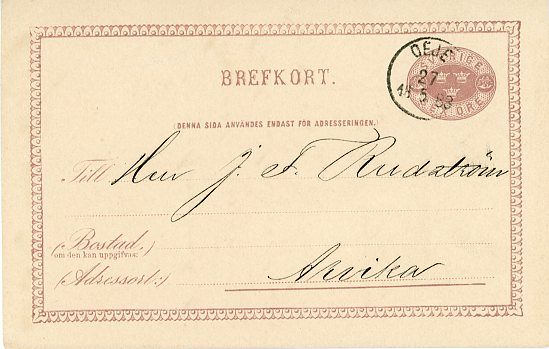 DEJE
27
15 5 83
SVERIGE
SEX ÖRE
BREFKORT.
(DENNA SIDA ANVÄNDES ENDAST FÖR ADRESSERINGEN.)
Till Herr J. F. Rudström
(Bostad.)
om den kan uppgifvas:
(Adressort:) Arvika